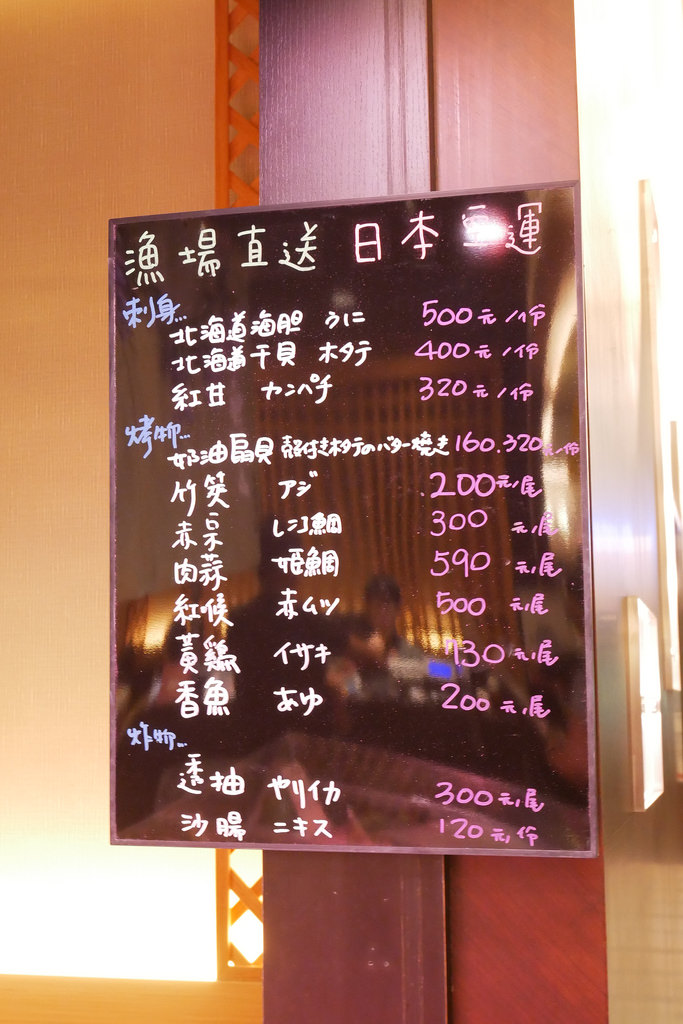 漁場直送 日本空運
刺身...
北海道海胆 うに 500元/份
北海道干貝 ホタテ 400元/份
紅甘 カンパチ 320元/份
烤物...
奶油扇貝 殻付きホタテのバター焼き 160.320元/份
竹筴 アジ 200元/尾
赤宗 レンコ鯛 300元/尾
肉蒜 姫鯛 590元/尾
紅候 赤ムツ 500元/尾
黃鶏 イサキ 730元/尾
香魚 あゆ 200元/尾
炸物...
透抽 ヤリイカ 300元/尾
沙腸 ニキス 120元/份